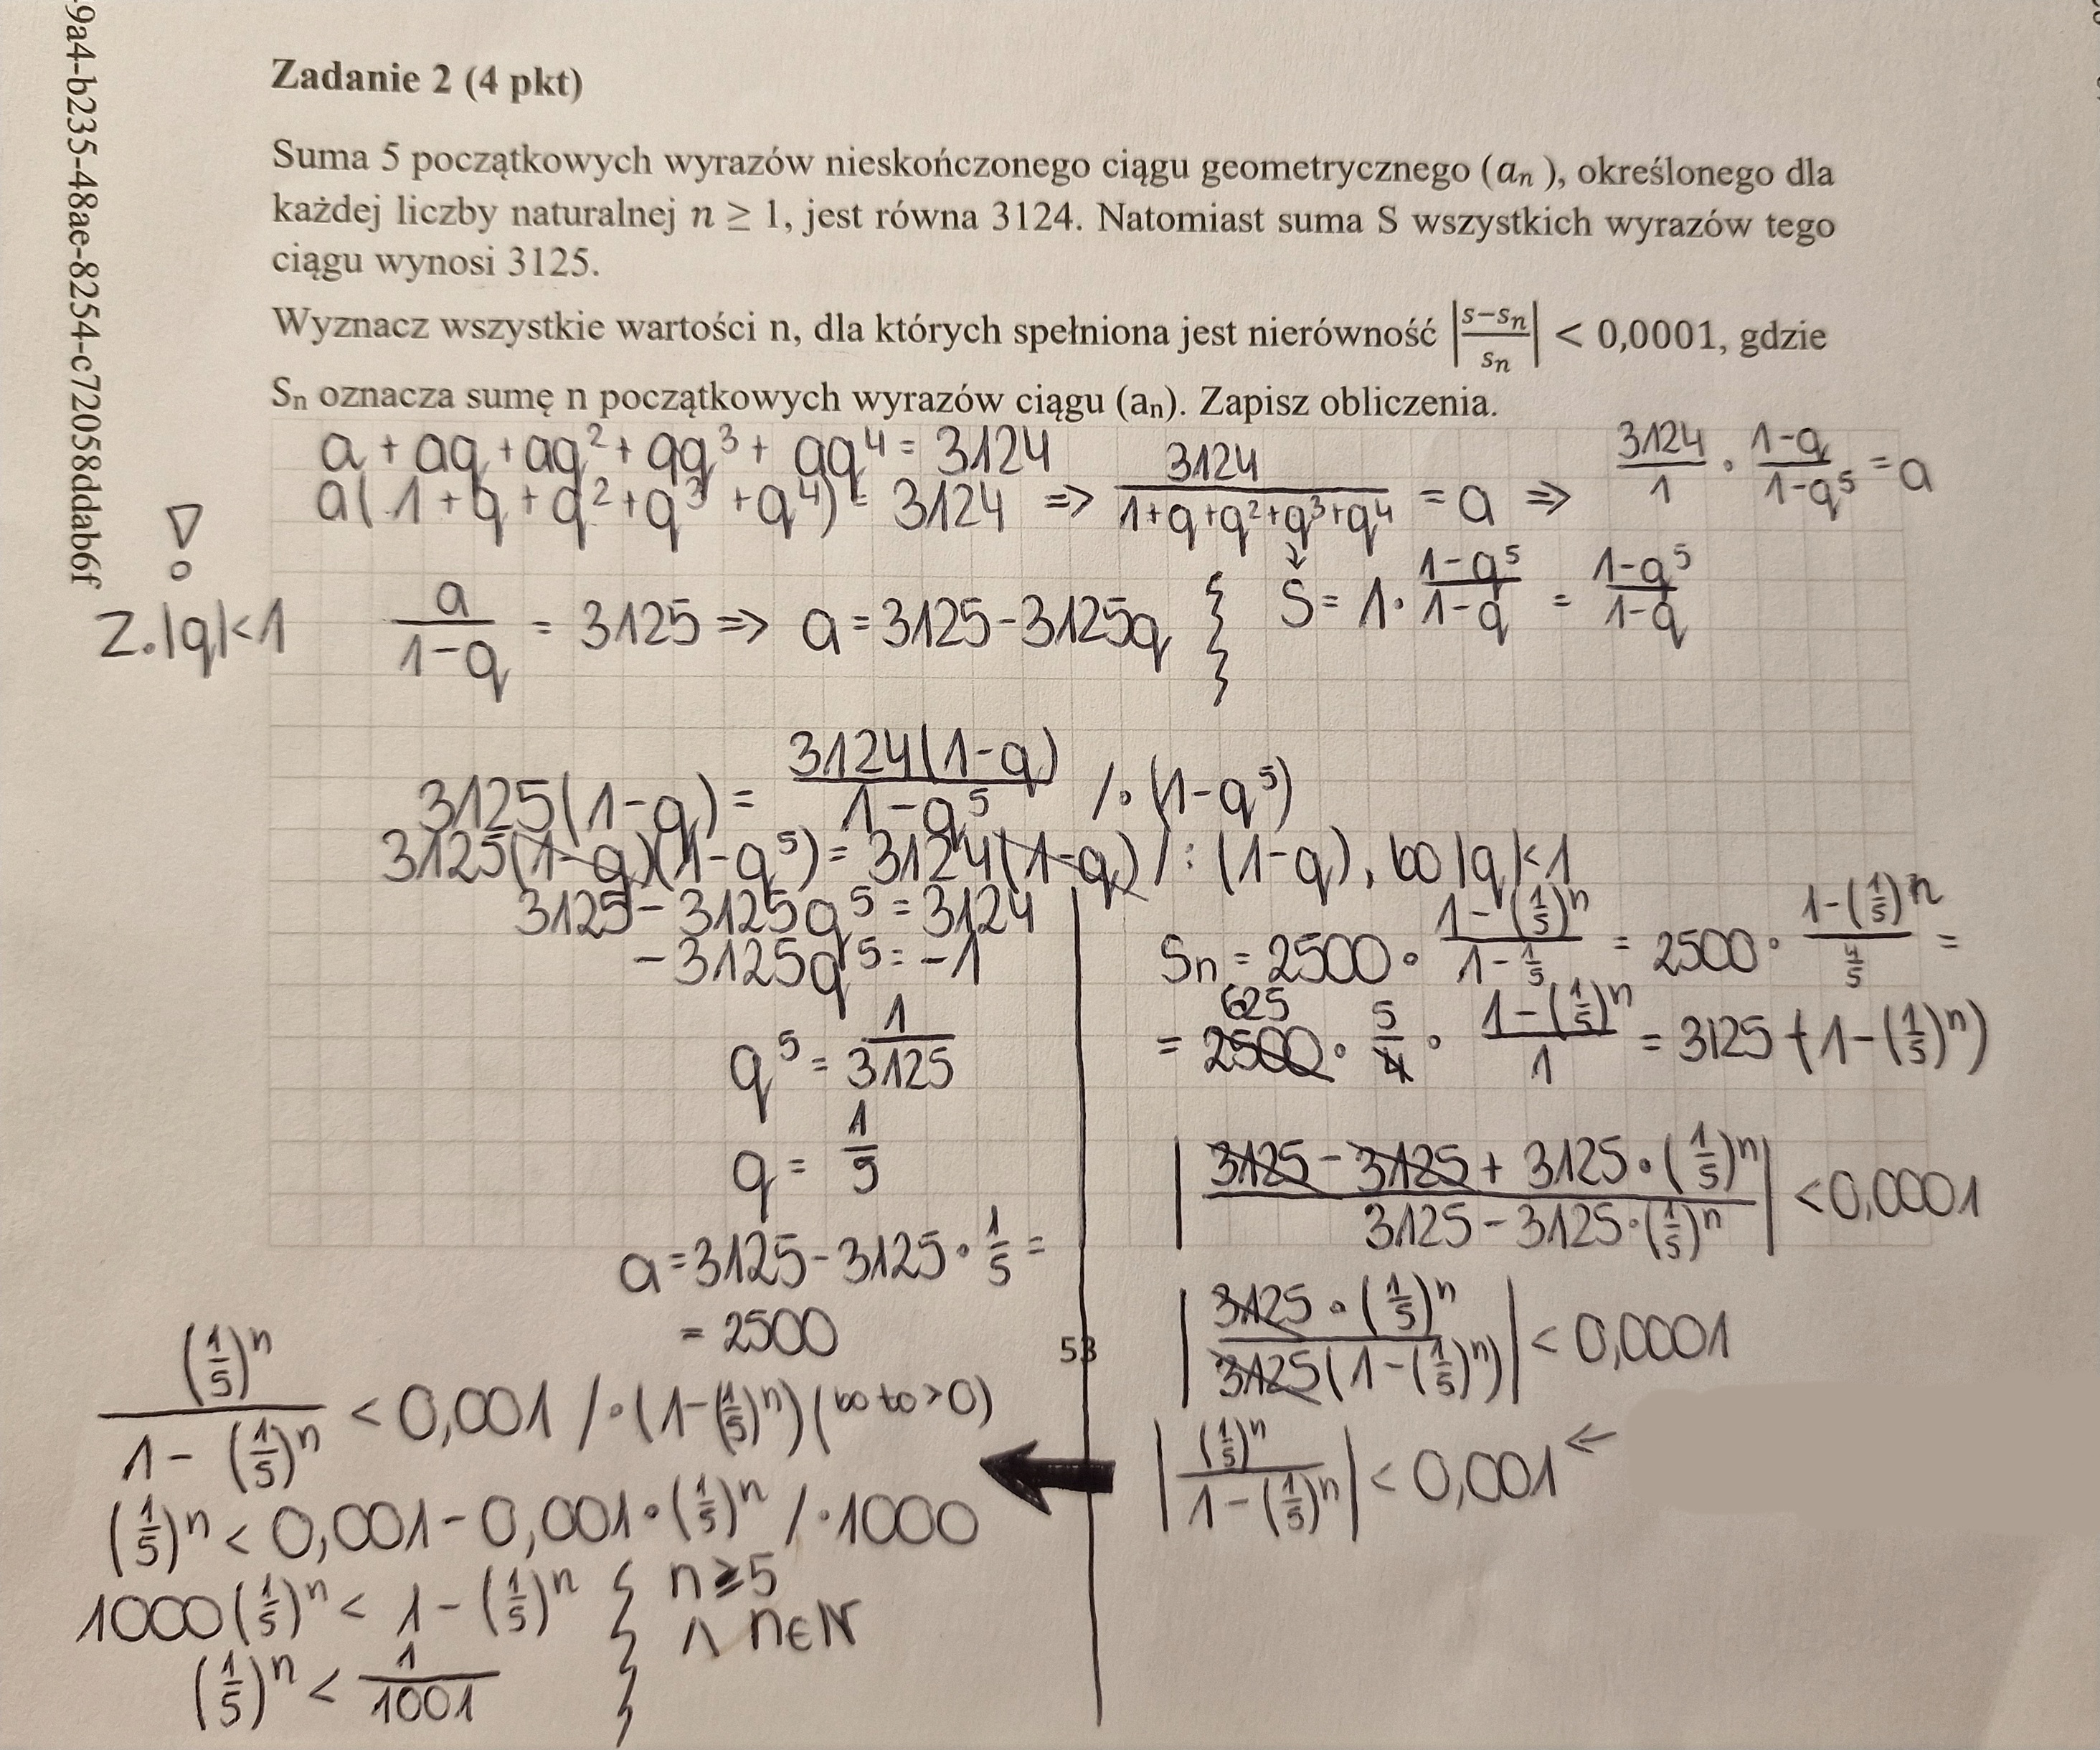 9a4-b235-48ae-8254-c72058ddab6f
Zadanie 2 (4 pkt)
Suma 5 początkowych wyrazów nieskończonego ciągu geometrycznego (aₙ ), określonego dla
każdej liczby naturalnej n ≥ 1, jest równa 3124. Natomiast suma S wszystkich wyrazów tego
ciągu wynosi 3125.
Wyznacz wszystkie wartości n, dla których spełniona jest nierówność |(s−sₙ)/sₙ| < 0,0001, gdzie
Sₙ oznacza sumę n początkowych wyrazów ciągu (aₙ). Zapisz obliczenia.
a + aq + aq² + aq³ + aq⁴ = 3124
a(1 + q + q² + q³ + q⁴) = 3124 => 3124/(1+q+q²+q³+q⁴) = a => 3124/1 · (1-q)/(1-q⁵) = a
↓
Z. |q|<1
a/(1-q) = 3125 => a = 3125-3125q
S = 1 · (1-q⁵)/(1-q) = (1-q⁵)/(1-q)
3125(1-q) = 3124(1-q)/(1-q⁵) /· (1-q⁵)
3125(1-q)(1-q⁵) = 3124(1-q) /: (1-q), bo |q|<1
3125 - 3125q⁵ = 3124
-3125q⁵ = -1
q⁵ = 1/3125
q = 1/5
a = 3125 - 3125 · 1/5 =
= 2500
Sn = 2500 · (1-(1/5)ⁿ)/(1-1/5) = 2500 · (1-(1/5)ⁿ)/(4/5) =
625
= 2500 · 5/4 · (1-(1/5)ⁿ)/1 = 3125 (1-(1/5)ⁿ)
|(3125 - 3125 + 3125 · (1/5)ⁿ)/(3125 - 3125 · (1/5)ⁿ)| < 0,0001
|(3125 · (1/5)ⁿ)/(3125(1-(1/5)ⁿ))| < 0,0001
53
|(1/5)ⁿ/(1-(1/5)ⁿ)| < 0,001 ←
(1/5)ⁿ/(1-(1/5)ⁿ) < 0,001 /· (1-(1/5)ⁿ) (bo to > 0)
(1/5)ⁿ < 0,001 - 0,001 · (1/5)ⁿ /· 1000
1000(1/5)ⁿ < 1 - (1/5)ⁿ
(1/5)ⁿ < 1/1001
n ≥ 5
∧ n∈N